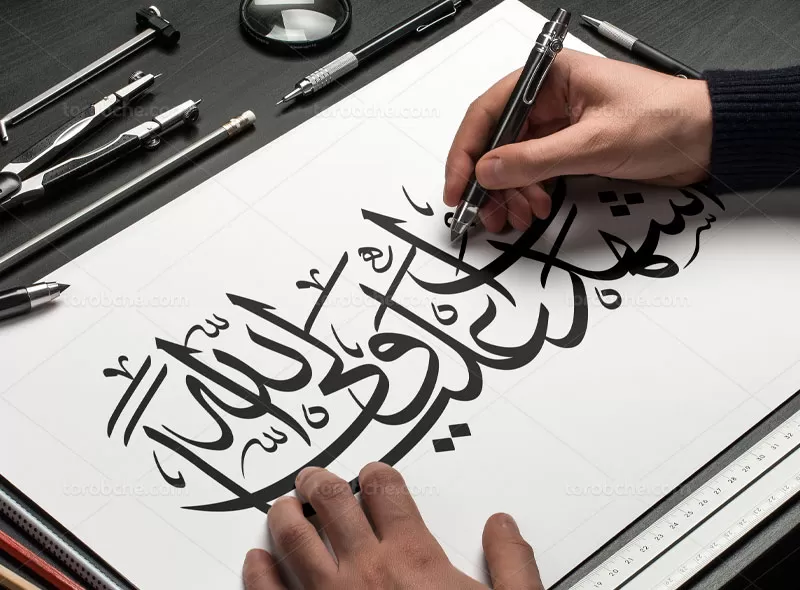 اشهد ان علیا ولی الله
torobche.com torobche.com torobche.com
torobche.com torobche.com torobche.com
torobche.com torobche.com torobche.com
19 20 21 22 23 24 25 26 27 28 29 30 31 32